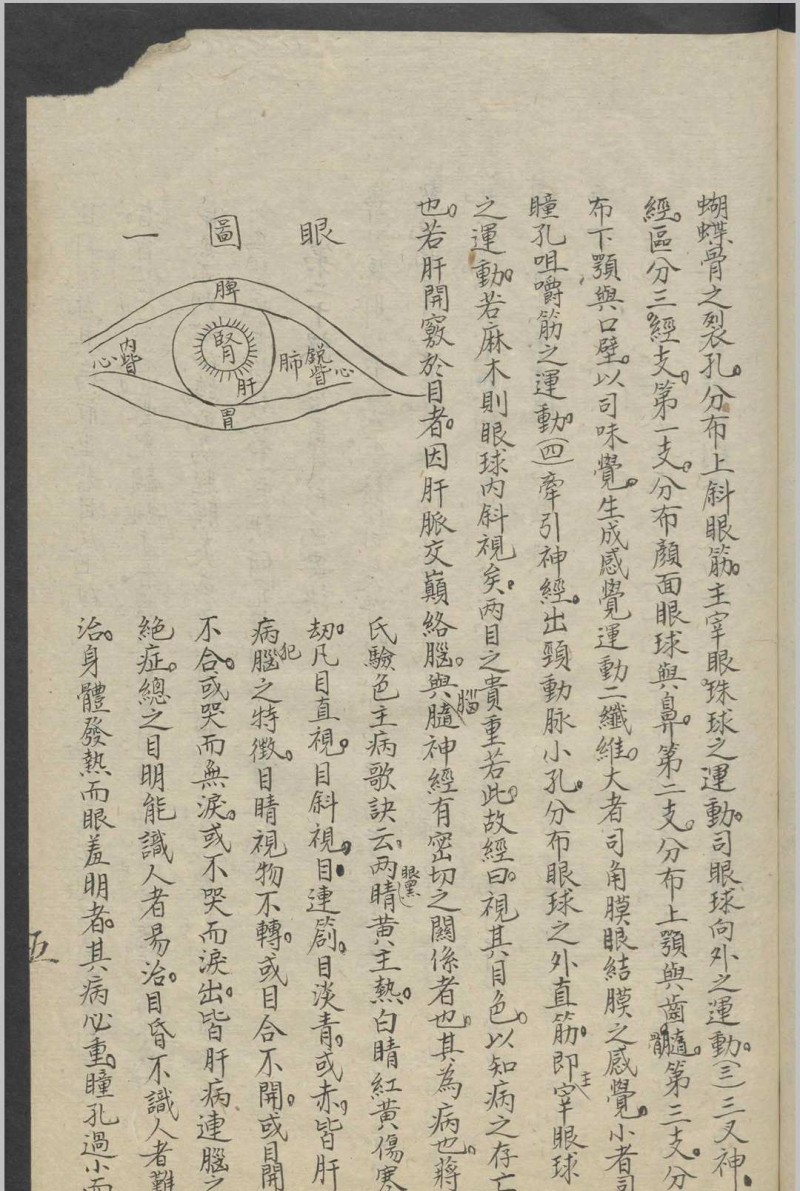 蝴蝶骨之裂孔。分布上斜眼筋。主宰眼珠球之運動。司眼球向外之運動。(三)三叉神
經。區分三經支。第一支。分布顏面眼球與鼻。第二支。分布上顎與齒齦。第三支。分
布下顎與口壁。以司味覺。生成感覺運動二纖維。大者司角膜眼結膜之感覺。小者司
瞳孔咀嚼筋之運動。(四)牽引神經。出頸動脉小孔。分布眼球之外直筋。即主宰眼球
之運動。若麻木則眼球內斜視矣。两目之貴重若此。故經曰。視其目色。以知病之存亡
也。若肝開竅於目者。因肝脈交巔絡腦。與腦髓神經有密切之關係者也。其為病也。蔣
氏驗色主病歌訣云。两眼黑睛黃主熱。白睛紅黃傷寒
劫。凡目直視。目斜視。目連劄。目淡青。或赤。皆肝
病犯腦之特徵。目睛視物不轉。或目合不開。或目開
不合。或哭而無淚。或不哭而淚出。皆肝病連腦之
絕症。總之目明能識人者易治。目昏不識人者難
治。身體發熱而眼羞明者。其病必重。瞳孔過小而
眼圖一
脾
銳眥心
肺
腎
肝
內眥心
胃
五